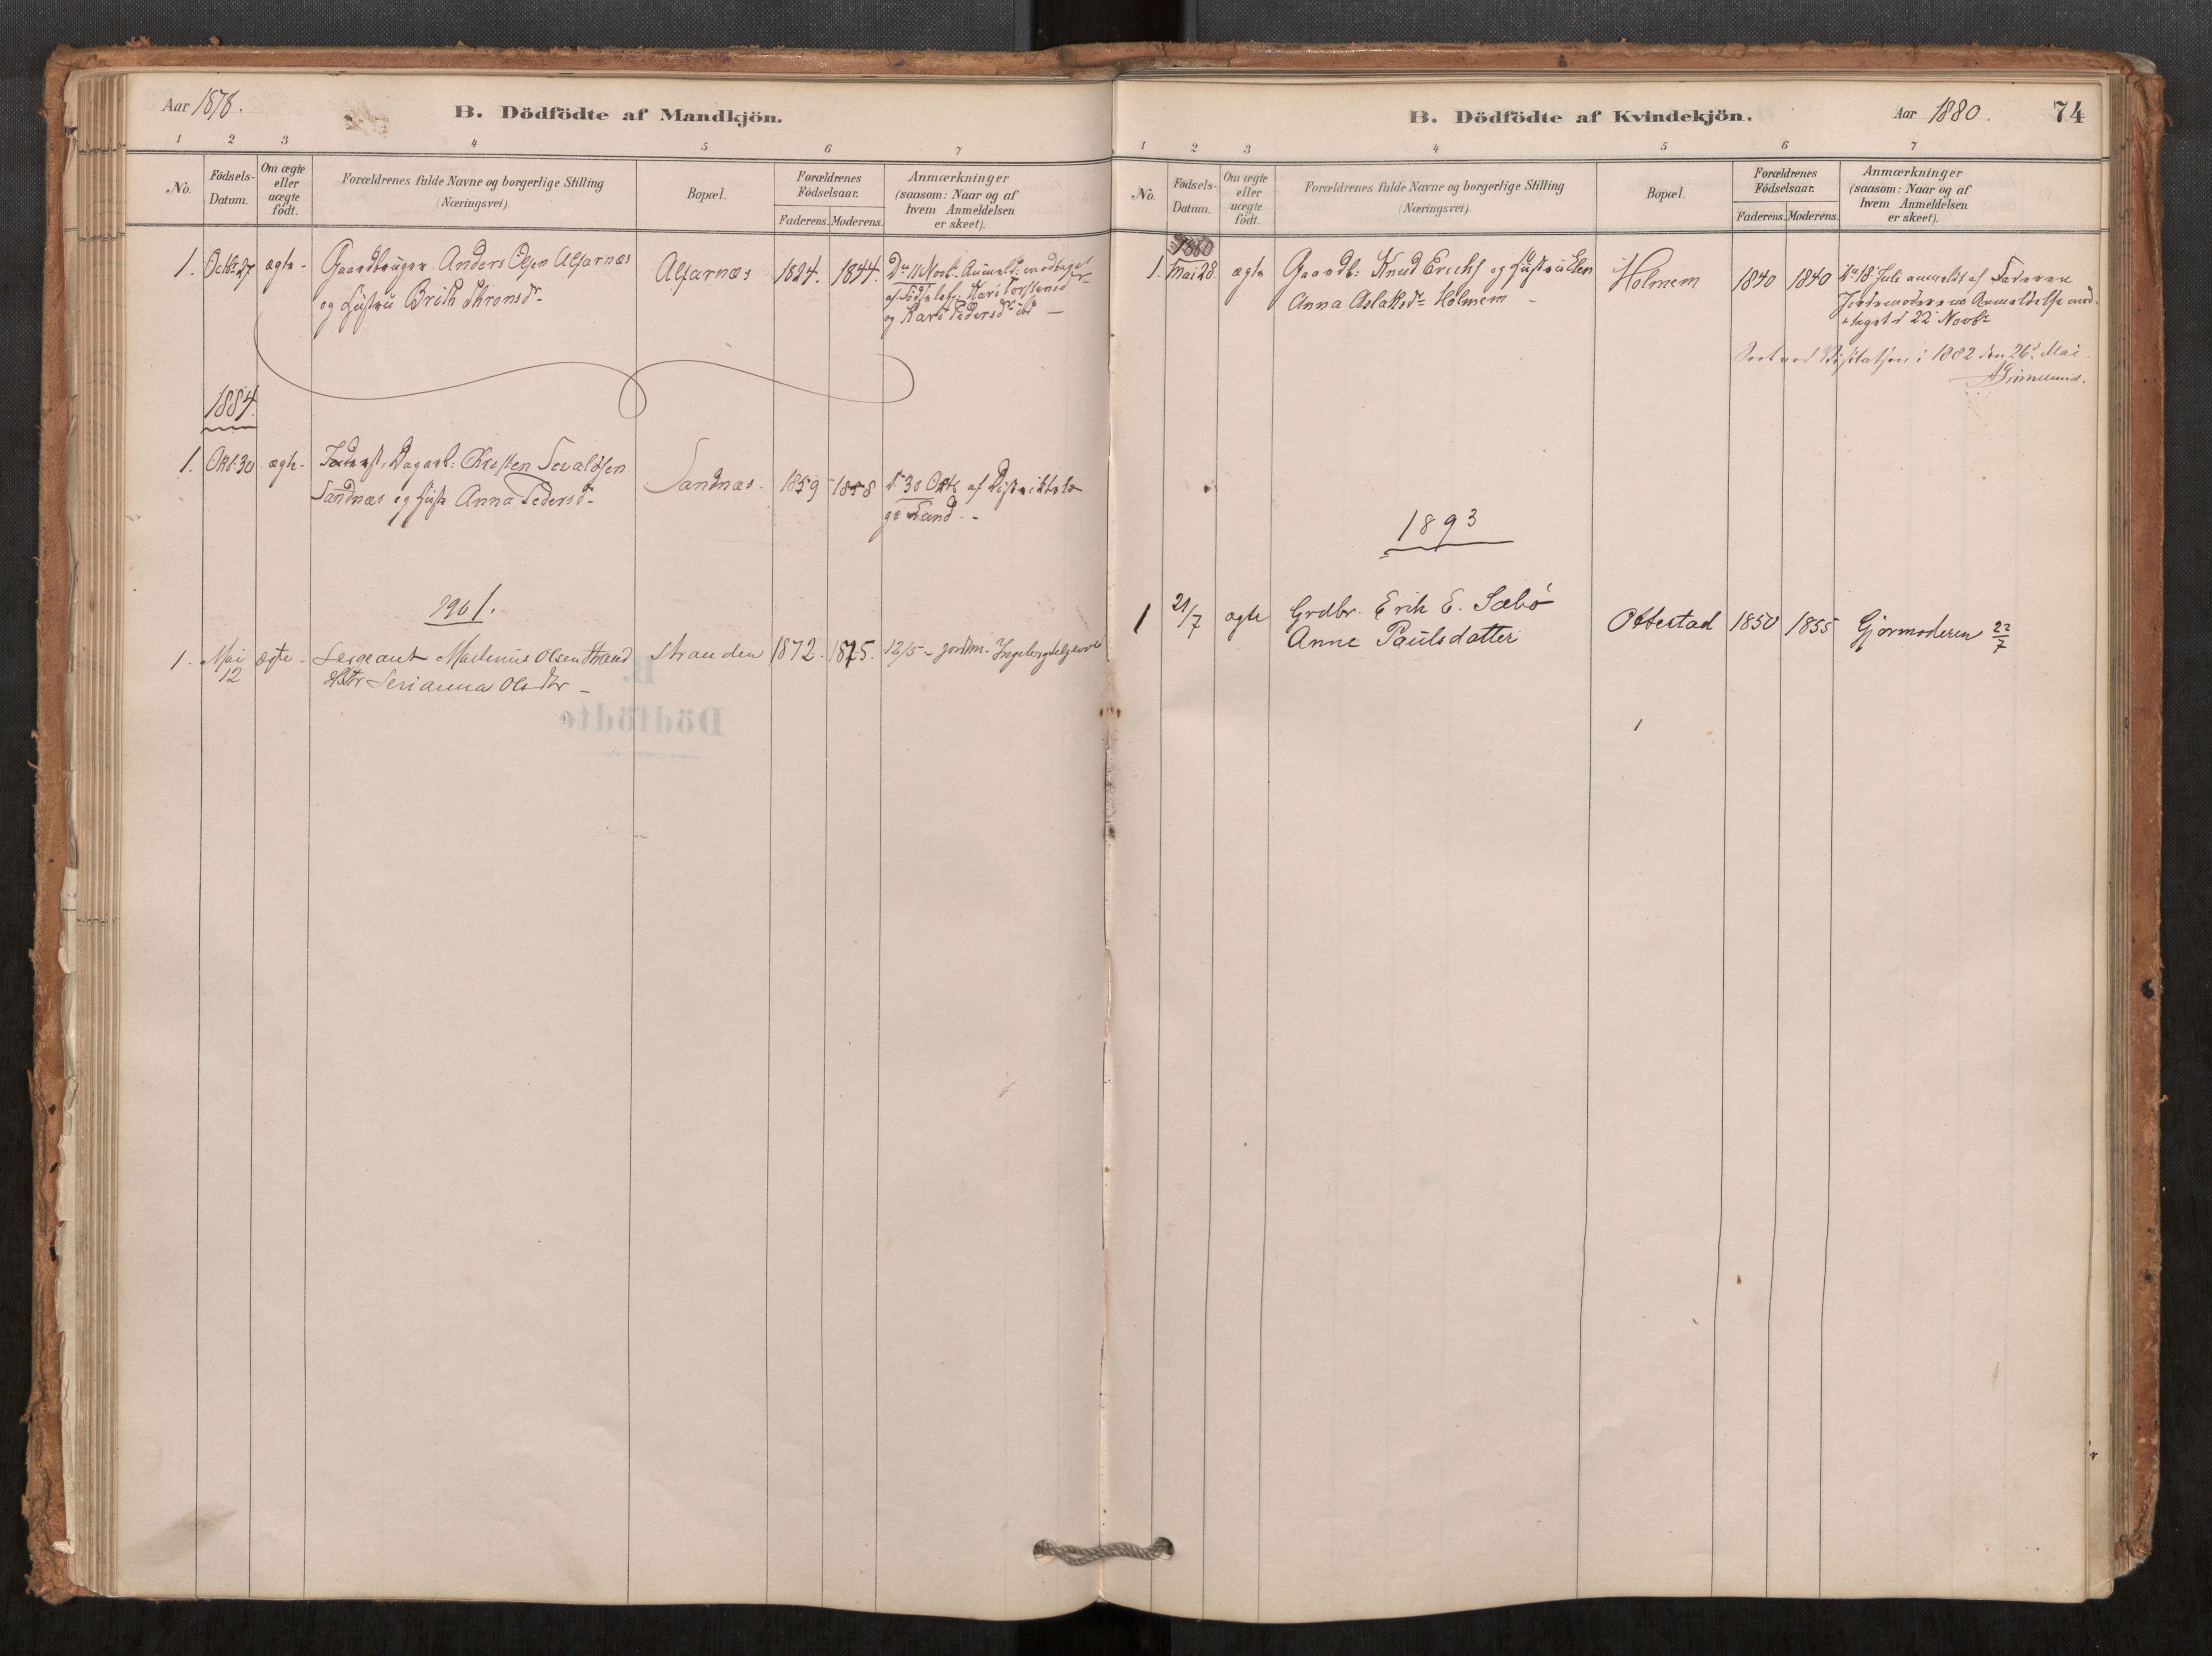 Aar 1878.
B. Dödfödte af Mandkjön.
1 2 3 4 5 6 7
No.
Födsels-
Datum.
Om ægte
eller
uægte
födt.
Forældrenes fulde Navne og borgerlige Stilling
(Næringsvei).
Bopæl.
Forældrenes
Födselsaar.
Faderens. Moderens.
Anmærkninger
(saasom: Naar og af
hvem Anmeldelsen
er skeet).
1. Octbr 27 ægte - Gaardbruger Anders Olsen Alfarnæs Alfarnæs 1824. 1844. Dn 11 Novb. Anmeld: modtaget
og Hustru Brith af Kari Torstensdr
og Kari Pedersdr ibd —
1884.
1. Okt. 30 ægte - Dagarb: Christen Sevaldsen
Sandnæs og Hustr Anna Pedersdr - Sandnæs - 1859 1858 d 30 Oktb af Distriktslæ
ge
1901.
1. Mai 12 ægte - Sergeant Martinus Olsen Strand Stranden 1872. 1875. 12/5 - jordm. Ingeborg
Hstr Serianna Olsdtr -
B.
Dödfödte
B. Dödfödte af Kvindekjön.
Aar 1880.
74
1 2 3 4 5 6 7
No.
Födsels-
Datum.
Om ægte
eller
uægte
födt.
Forældrenes fulde Navne og borgerlige Stilling
(Næringsvei).
Bopæl.
Forældrenes
Födselsaar.
Faderens. Moderens.
Anmærkninger
(saasom: Naar og af
hvem Anmeldelsen
er skeet).
1880
1. Mai 28. ægte Gaardb: Knud Erichs og Hustru Elen Holmem 1840 1840 Dn 18 Juli anmeldt af Faderen
Anna Aslaksdr Holmem - Jordemoderens Anmeldelse mod-
taget d 22 Novbr
Seet ved Visitatsen i 1882 den 26d Mai.
1893
1 21/7 ægte Grdbr. Erik E. Sæbö Ottestad 1850 1855 Gjormoderen 22/7
Anne Paulsdatter